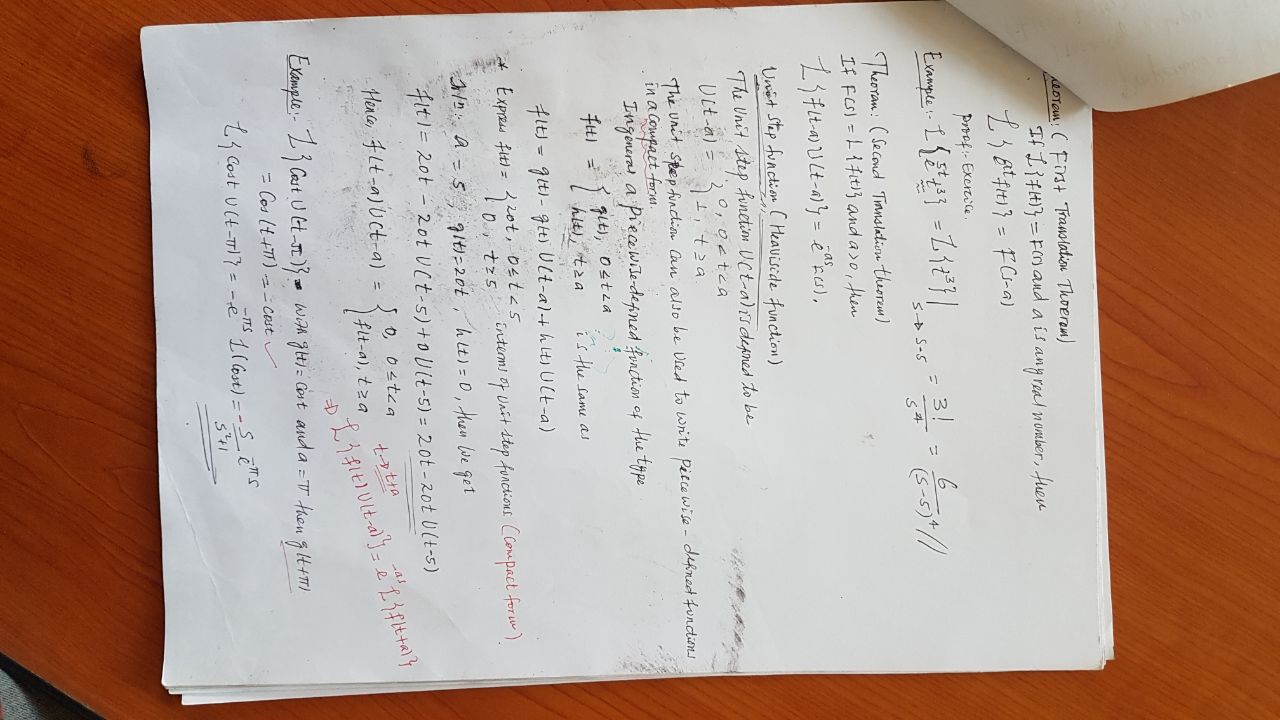 Theorem: (First Translation Thorerem)
If L{f(t)} = F(s) and a is any real number, then
L{e^{at} f(t)} = F(s-a)
proof:- Exercice.
Example:- L{e^{5t} t^3} = L{t^3}|_{s→s-5} = 3!/s^4 = 6/(s-5)^4 //
Theorem: (Second Translation theorem)
If F(s) = L{f(t)} and a>0, then
L{f(t-a) U(t-a)} = e^{-as} F(s).
Unit step function (Heaviside function)
The Unit step function U(t-a) is defined to be
U(t-a) = { 0, 0<t<a
1, t≥a
The Unit step function can also be used to write piecewise-defined functions
in a compact form.
In general a piecewise-defined function of the type
f(t) = { g(t), 0≤t<a
h(t), t≥a is the same as
f(t) = g(t) - g(t) U(t-a) + h(t) U(t-a)
* Express f(t) = { 20t, 0≤t<5
0, t≥5 interms of unit step functions (compact form)
Soln:- a = 5, g(t)=20t, h(t)=0, then we get
f(t) = 20t - 20t U(t-5) + 0 U(t-5) = 20t - 20t U(t-5)
Hence, f(t-a) U(t-a) = { 0, 0≤t<a
f(t-a), t≥a
t→t+a
⇒ L{f(t) U(t-a)} = e^{-as} L{f(t+a)}
Example:- L{Cost U(t-π)} with g(t)=cost and a=π then g(t+π)
= Cos(t+π) = -cost ✓
L{Cost U(t-π)} = -e^{-πs} L(cost) = -s/(s^2+1) e^{-πs}